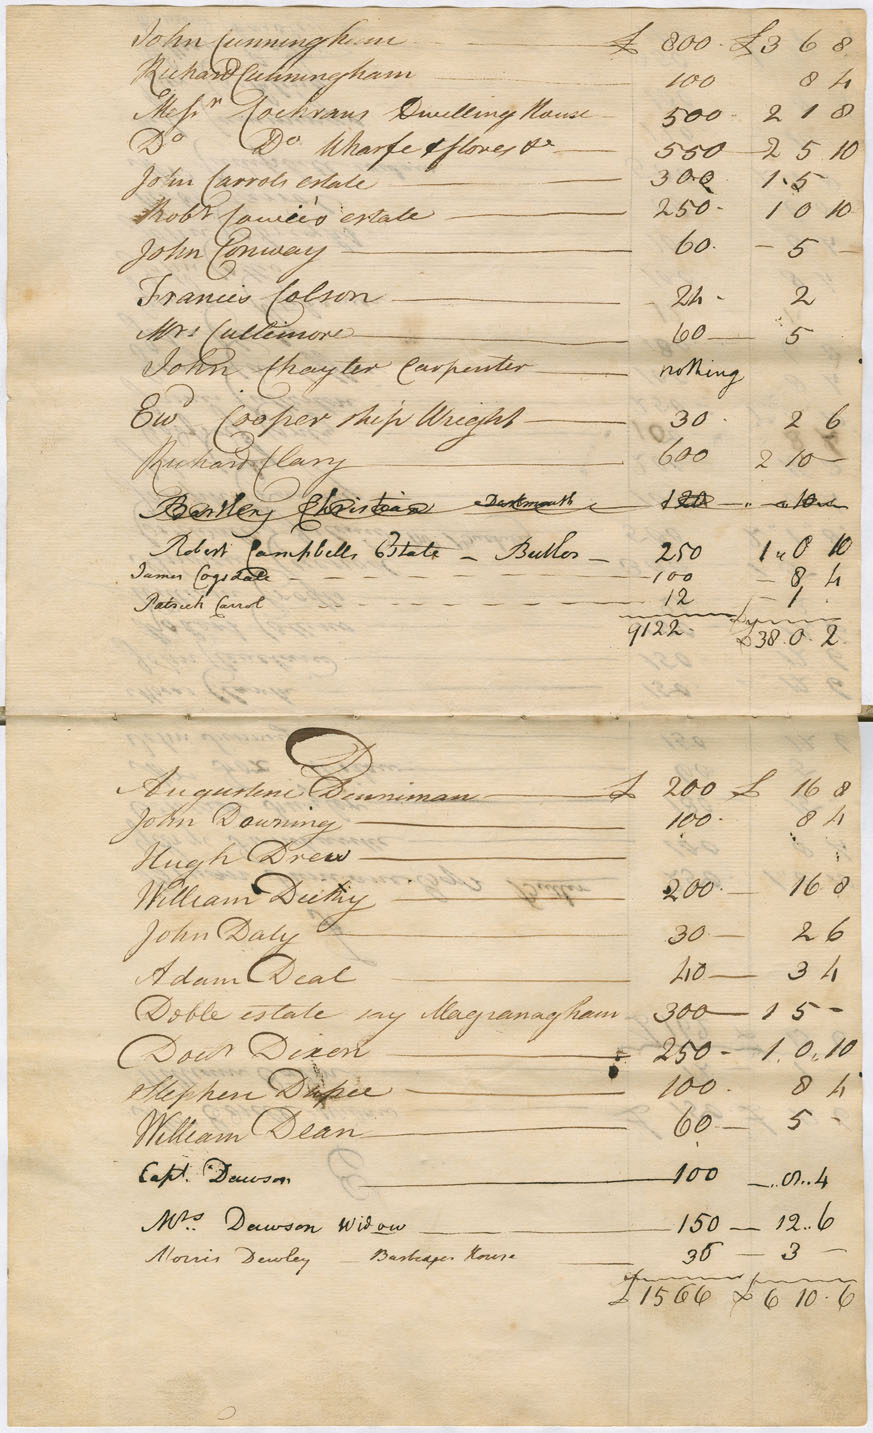 John Cunningham £ 800 £3 6 8
Richard Cunningham 100 8 4
Messrs Cochrans Dwelling House 500 2 1 8
Do Do Wharfe & stores &c 550 2 5 10
John Carrols estate 300 1 5
Robt estate 250 1 0 10
John Conway 60 5
Francis Colson 24 2
Mrs Cullimore 60 5
John Chayter Carpenter nothing
Ewd Cooper ship Wright 30 2 6
Richard Clary 600 2 10
Bartley Christian Dartmouth 120 10
Robert Campbells Estate - Butler - 250 1 " 0 10
James Cogsdale 100 8 4
Patrick Carrol 12 1
9122 £38.0.2
D
Augustine Denniman £ 200 £ 16 8
John Downing 100 8 4
Hugh Drew
William 200 16 8
John Daly 30 2 6
Adam Deal 40 3 4
Doble estate say Magranagham 300 1 5
Doctr Dixon 250 1.0.10
Stephen Dupee 100 8 4
William Dean 60 5
Capt. Dawson 100 8..4
Mrs Dawson Widow 150 12..6
Morris Dewley House 36 3
£1566 £6 10.6